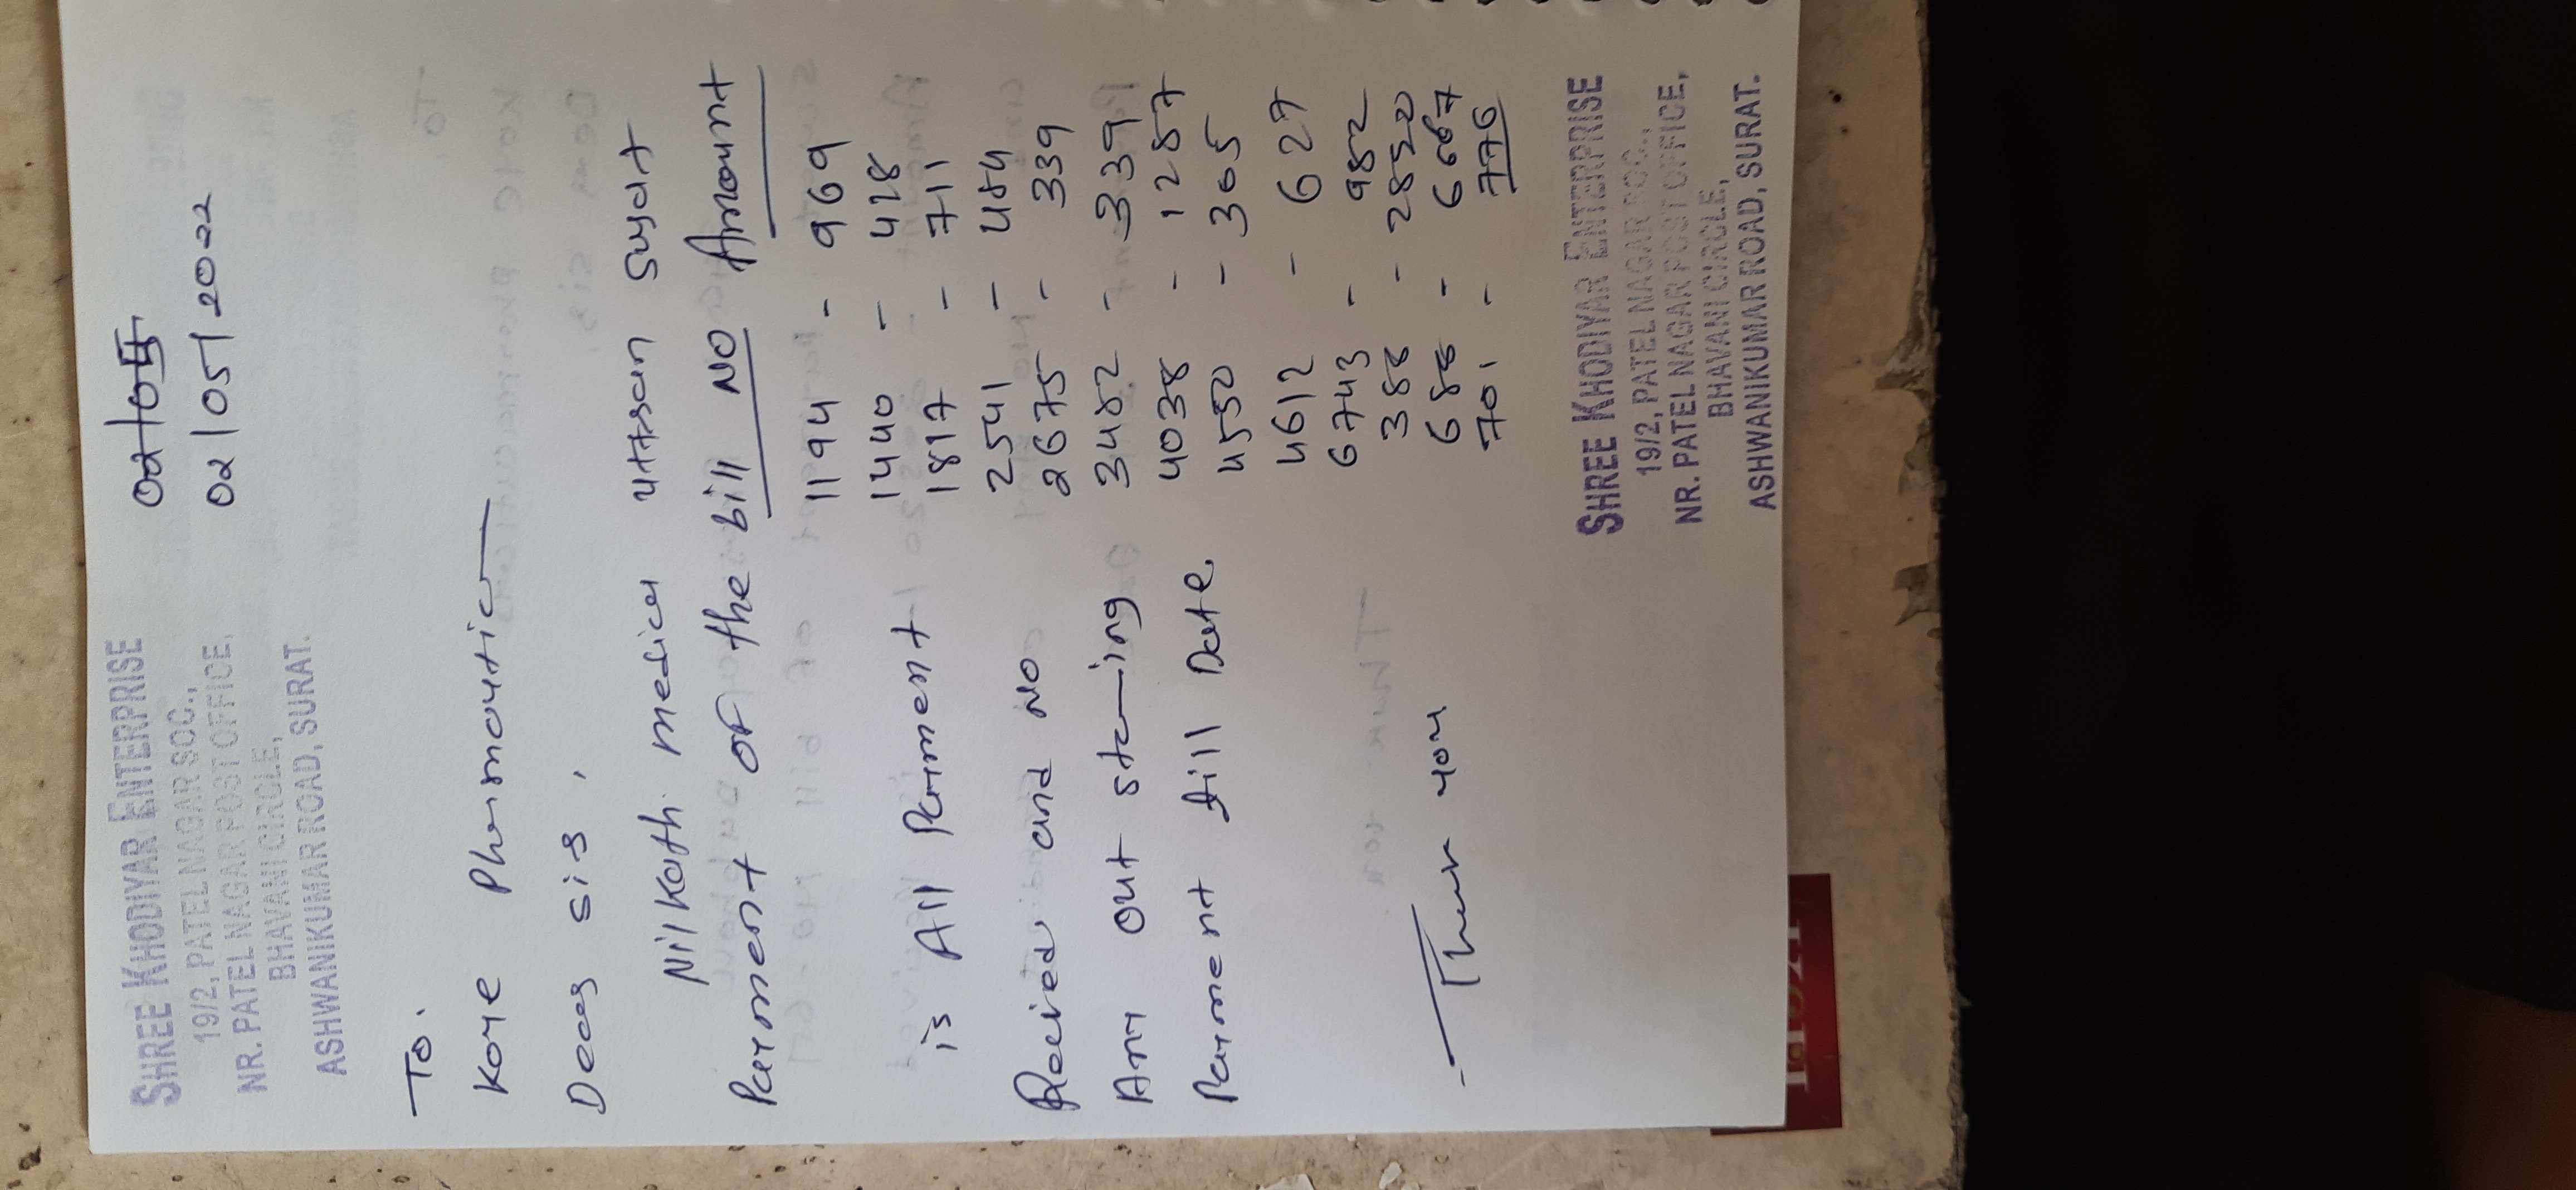 SHREE KHODIYAR ENTERPRISE
19/2, PATEL NAGAR SOC.,
NR. PATEL NAGAR POST OFFICE,
BHAVANI CIRCLE,
ASHWANIKUMAR ROAD, SURAT.
02/05/2022
To.
Dear sir,
Nilkath medical uttran surat
Payment of the bill NO Amount
is All Payment
Received and NO
Any out standing
Payment till Date.
1194 - 969
1440 - 428
1817 - 711
2541 - 484
2675 - 339
3482 - 339
4038 - 1287
4550 - 305
4612 - 627
6743 - 982
388 - 2850
688 - 667
701 - 776
Thank you
SHREE KHODIYAR ENTERPRISE
19/2, PATEL NAGAR SOC.,
NR. PATEL NAGAR POST OFFICE,
BHAVANI CIRCLE,
ASHWANIKUMAR ROAD, SURAT.